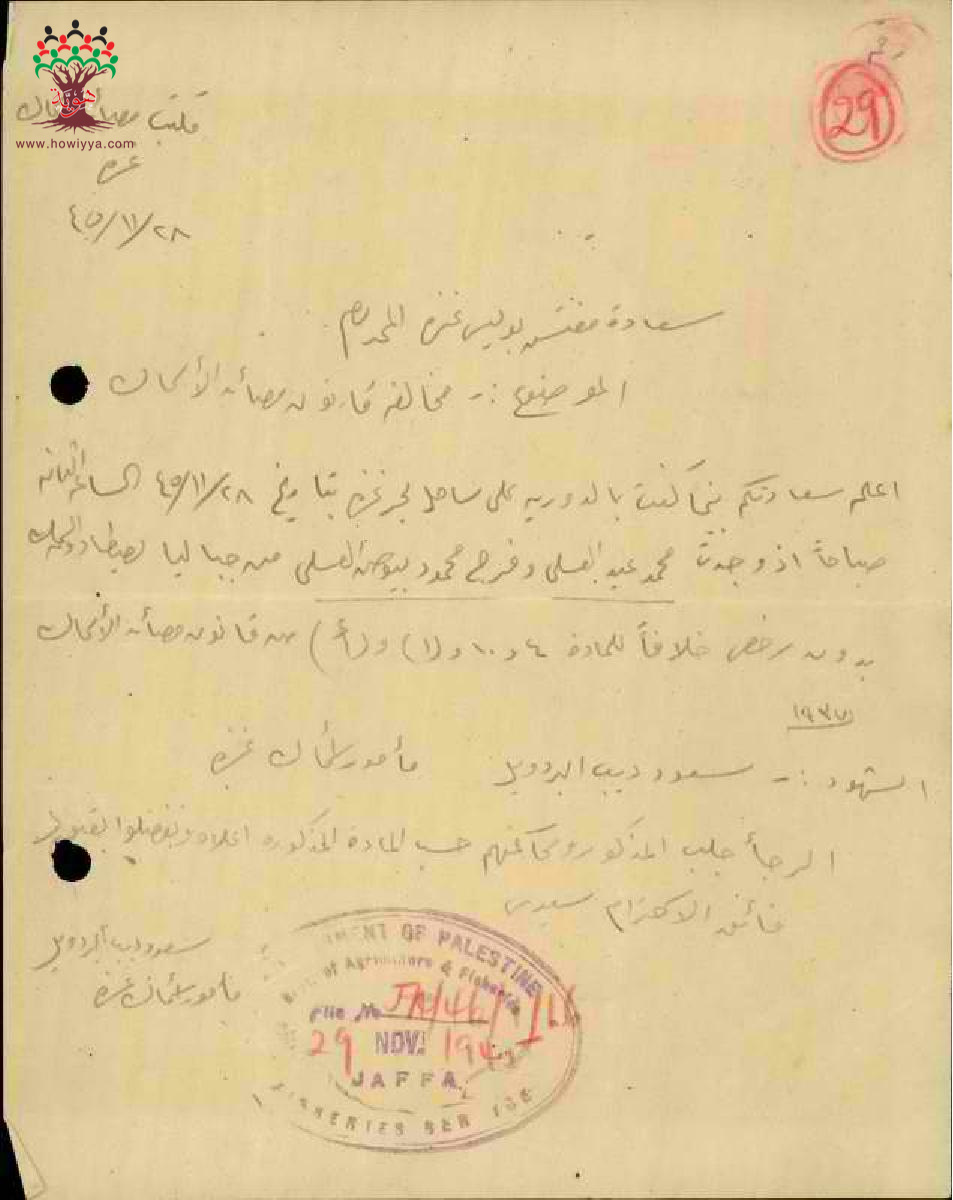 رقم
29
هوية
www.howiyya.com
مكتب مصائد
غزة
٤٥/١١/٢٨
سعادة مفتش بوليس غزة المحترم
الموضوع :- مخالفة قانون مصائد الأسماك
اعلم سعادتكم بينما كنت بالدورية على ساحل بحر غزة بتاريخ ٤٥/١١/٢٨ الساعة الثامنة
صباحاً اذ وجدت محمد عبد العسلي وفرج محمود العسلي من جباليا
بدون رخص خلافاً للمادة ٤ و ١٠ و (١) و (أ) من قانون مصائد الأسماك
١٩٣٧
الشهود :- سعود ديب البردويل مأمور أسماك غزة
الرجأ جلب المذكور ومحاكمتهم حسب المادة المذكورة اعلاه وتفضلوا بقبول
فائق الاحترام سيدي
سعود ديب البردويل
مأمور أسماك غزة
MENT OF PALESTINE
of Agriculture & Fisheries
File No JA/46/
29 NOV. 194
JAFFA
FISHERIES SERVICE